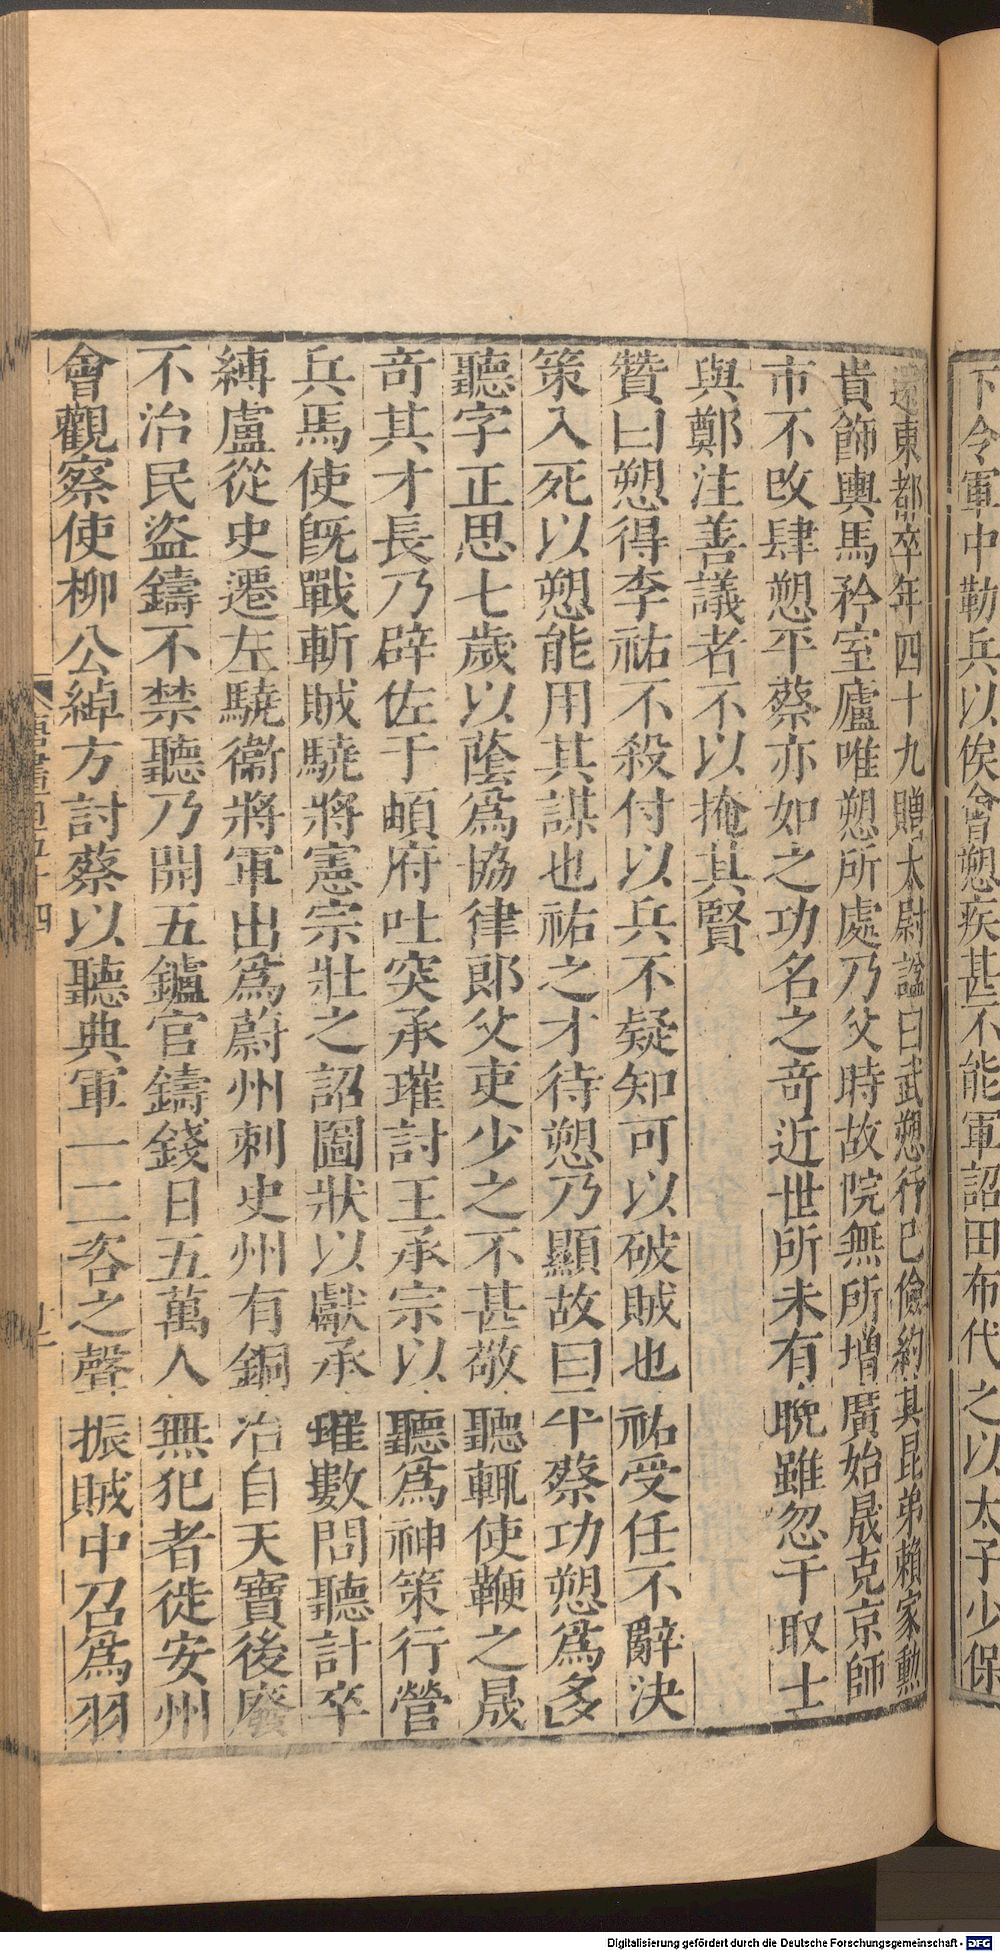 下令軍中勒兵以俟會愬疾甚不能軍詔田布代之以太子少保
還東都卒年四十九贈太尉諡曰武愬行己儉約其昆弟賴家勳
貴飾輿馬矜室廬唯愬所處乃父時故院無所增廣始晟克京師
市不改肆愬平蔡亦如之功名之奇近世所未有晚雖忽于取士
與鄭注善議者不以掩其賢
贊曰愬得李祐不殺付以兵不疑知可以破賊也祐受任不辭決
策入死以愬能用其謀也祐之才待愬乃顯故曰平蔡功愬爲多
聽字正思七歲以蔭爲協律郎父吏少之不甚敬聽輒使鞭之晟
奇其才長乃辟佐于頔府吐突承璀討王承宗以聽爲神策行營
兵馬使旣戰斬賊驍將憲宗壯之詔圖狀以獻承璀數問聽計卒
縛盧從史遷左驍衞將軍出爲蔚州刺史州有銅冶自天寶後廢
不治民盜鑄不禁聽乃開五鑪官鑄錢日五萬人無犯者徙安州
會觀察使柳公綽方討蔡以聽典軍一二咨之聲振賊中召爲羽
唐書百五十四
Digitalisierung gefördert durch die Deutsche Forschungsgemeinschaft - DFG